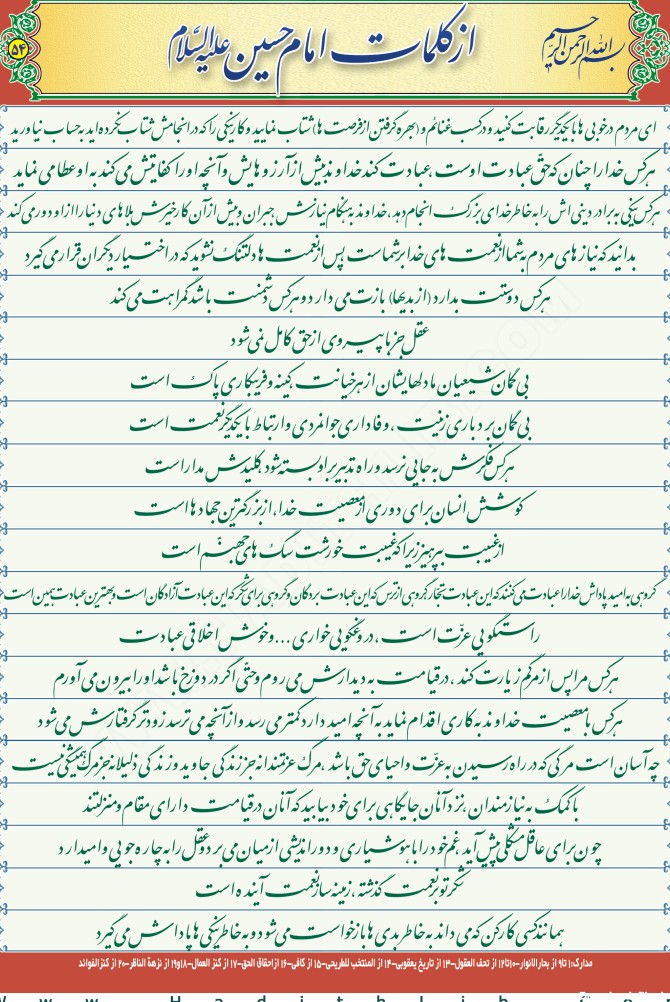 بسم الله الرحمن الرحیم
از کلمات امام حسین علیه السّلام
۵۴
ای مردم در خوبی ها با یکدیگر رقابت کنید و در کسب غنائم و (بهره گرفتن از فرصت ها) شتاب نمایید و کار نیکی را که در انجامش شتاب نکرده اید به حساب نیاورید
هر کس خدا را چنان که حقّ عبادت اوست ، عبادت کند خداوند بیش از آرزوهایش و آنچه او را کفایتش می کند به او عطا می نماید
هر کس نیکی به برادر دینی اش را به خاطر خدای بزرگ انجام دهد، خداوند به هنگام نیازش جبران و بیش از آن کار خیرش بلاهای دنیا را از او دوری کند
بدانید که نیاز های مردم به شما از نعمت های خدا بر شماست پس از نعمت ها دلتنگ نشوید که در اختیار دیگران قرار می گیرد
هر کس دوستت بدارد (از بدیها) بازت می دارد و هر کس دشمنت باشد گمراهت می کند
عقل جز با پیروی از حق کامل نمی شود
بی گمان شیعیان ما دلهایشان از هر خیانت ، کینه و فریبکاری پاک است
بی گمان بردباری زینت ، وفاداری جوانمردی و ارتباط با یکدیگر نعمت است
هر کس فکرش به جایی نرسد و راه تدبیر بر او بسته شود کلیدش مدارا است
کوشش انسان برای دوری از معصیت خدا، از بزرگترین جهادها است
از غیبت بپرهیز زیرا که غیبت خورشت سگ های جهنّم است
گروهی به امید پاداش خدا را عبادت می کنند که این عبادت تجار ، گروهی از ترس که این عبادت بردگان و گروهی برای شکر که این عبادت آزادگان است و بهترین عبادت همین است
راستگویی عزّت است ، دروغگویی خواری ... و خوش اخلاقی عبادت
هر کس مرا پس از مرگم زیارت کند ، در قیامت به دیدارش می روم و حتّی اگر در دوزخ باشد او را بیرون می آورم
هر کس با معصیت خداوند به کاری اقدام نماید به آنچه امید دارد کمتر می رسد و از آنچه می ترسد زودتر گرفتارش می شود
چه آسان است مرگی که در راه رسیدن به عزّت و احیای حق باشد ، مرگ عزتمندانه جز زندگی جاوید و زندگی ذلیلانه جز مرگ همیشگی نیست
با کمک به نیازمندان ، نزد آنان جایگاهی برای خود بیابید که آنان در قیامت دارای مقام و منزلتند
چون برای عاقل مشکلی پیش آید ، غم خود را با هوشیاری و دوراندیشی از میان می برد و عقل را به چاره جویی وامیدارد
شکر تو بر نعمت گذشته ، زمینه ساز نعمت آینده است
همانند کسی کار کن که می داند به خاطر بدی ها بازخواست می شود و به خاطر نیکی ها پاداش می گیرد
مدارک:۱ تا۹ از بحارالانوار-۱۰تا۱۲ از تحف العقول-۱۳ از تاریخ یعقوبی-۱۴ از المنتخب للطریحی-۱۵ از کافی-۱۶ ازاحقاق الحق-۱۷ از کنز العمال-۱۸و۱۹ از نزهة الناظر-۲۰ از کنزالفوائد